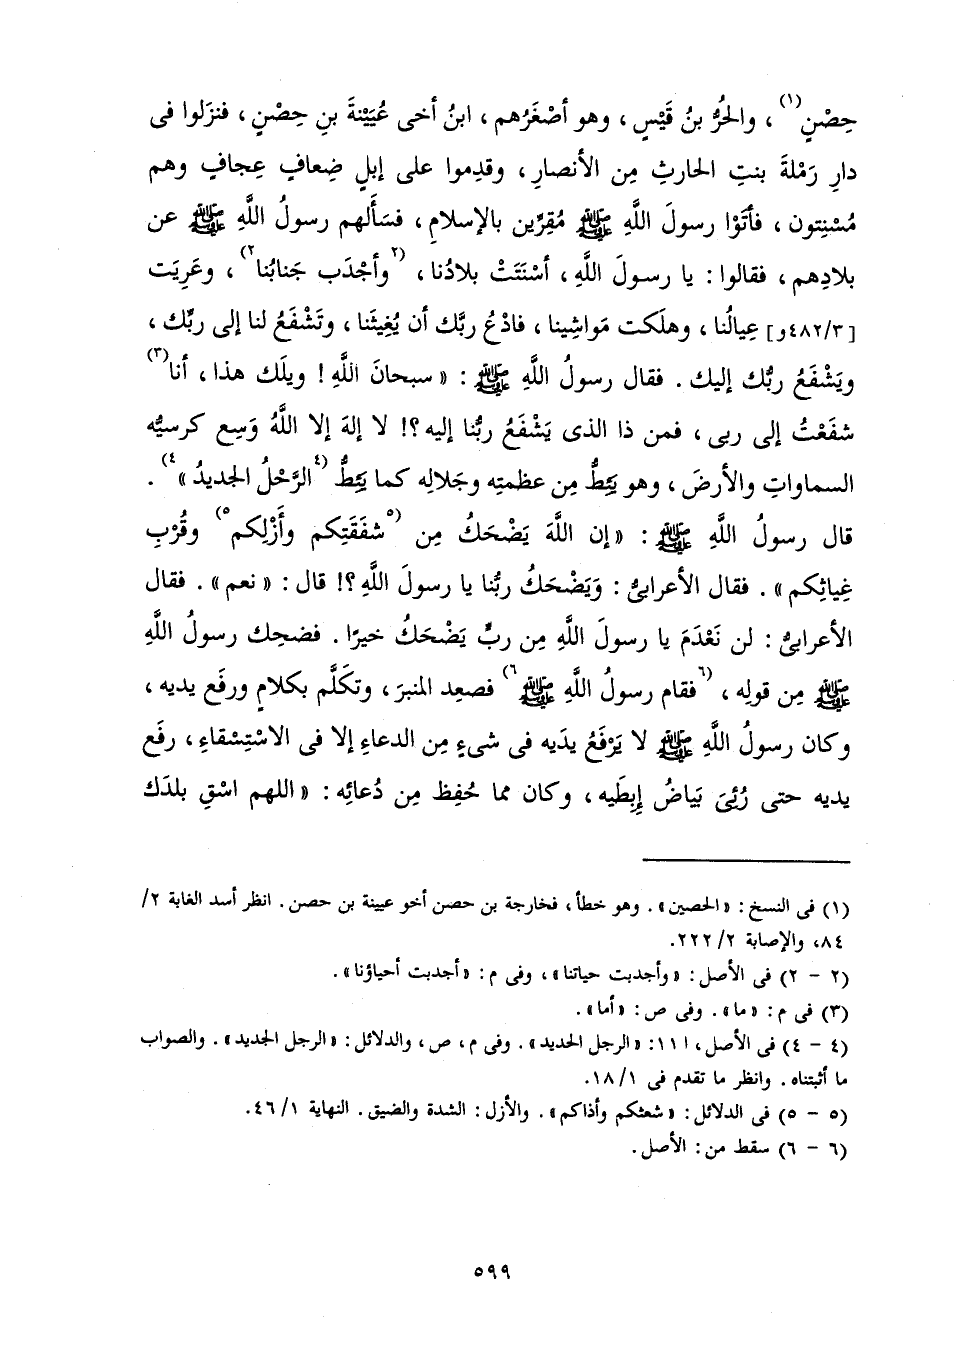 حِصْنٍ(١) ، والحُرُّ بنُ قَيْسٍ ، وهو أصْغَرُهم ، ابنُ أخى عُيَيْنةَ بنِ حِصْنٍ ، فنزَلوا فى
دارِ رَمْلةَ بنتِ الحارثِ مِن الأنصارِ ، وقدِموا على إبلٍ ضِعافٍ عِجافٍ وهم
مُسْنِتون ، فأتَوْا رسولَ اللَّهِ ﷺ مُقِرِّين بالإسلامِ ، فسَأَلهم رسولُ اللَّهِ ﷺ عن
بلادِهم ، فقالوا : يا رسولَ اللَّهِ ، أسْنَتَتْ بلادُنا ، (٢وأجْدَب جَنابُنا٢) ، وعَرِيَت
[٤٨٢/٣و] عِيالُنا ، وهلَكت مَواشِينا ، فادْعُ ربَّك أن يُغِيثَنا ، وتَشْفَعُ لنا إلى ربِّك ،
ويَشْفَعُ ربُّك إليك . فقال رسولُ اللَّهِ ﷺ : « سبحانَ اللَّهِ ! ويلَك هذا ، أنا(٣)
شفَعْتُ إلى ربى ، فمن ذا الذى يَشْفَعُ ربُّنا إليه ؟! لا إلهَ إلا اللَّهُ وَسِع كرسيُّه
السماواتِ والأرضَ ، وهو يَئِطُّ مِن عظمتِه وجَلالِه كما يَئِطُّ (٤الرَّحْلُ الجديدُ »٤) .
قال رسولُ اللَّهِ ﷺ : « إن اللَّهَ يَضْحَكُ مِن (٥شفَقَتِكم وأَزْلِكم٥) وقُرْبِ
غِياثِكم » . فقال الأعرابىُّ : وَيَضْحَكُ ربُّنا يا رسولَ اللَّهِ ؟! قال : « نعم » . فقال
الأعرابىُّ : لن نَعْدَمَ يا رسولَ اللَّهِ مِن ربٍّ يَضْحَكُ خيرًا . فضحِك رسولُ اللَّهِ
ﷺ مِن قولِه ، (٦فقام رسولُ اللَّهِ ﷺ٦) فصعِد المنبرَ ، وتكَلَّم بكلامٍ ورفَع يديه ،
وكان رسولُ اللَّهِ ﷺ لا يَرْفَعُ يدَيه فى شىءٍ مِن الدعاءِ إلا فى الاسْتِسْقاءِ ، رفَع
يديه حتى رُئِىَ بَياضُ إبِطَيه ، وكان مما حُفِظ مِن دُعائِه : « اللهم اسْقِ بلدَك
(١) فى النسخ : « الحصين » . وهو خطأ ، فخارجة بن حصن أخو عيينة بن حصن . انظر أسد الغابة ٢/
٨٤، والإصابة ٢/ ٢٢٢.
(٢ - ٢) فى الأصل : « وأجدبت حياتنا » ، وفى م : « أجدبت أحياؤنا » .
(٣) فى م : « ما » . وفى ص : « أما » .
(٤ - ٤) فى الأصل ، ا ١١: « الرجل الحديد » . وفى م ، ص ، والدلائل : « الرجل الجديد » . والصواب
ما أثبتناه . وانظر ما تقدم فى ١/ ١٨.
(٥ - ٥) فى الدلائل : « شعثكم وأذاكم » . والأزل : الشدة والضيق . النهاية ١/ ٤٦.
(٦ - ٦) سقط من : الأصل .
٥٩٩